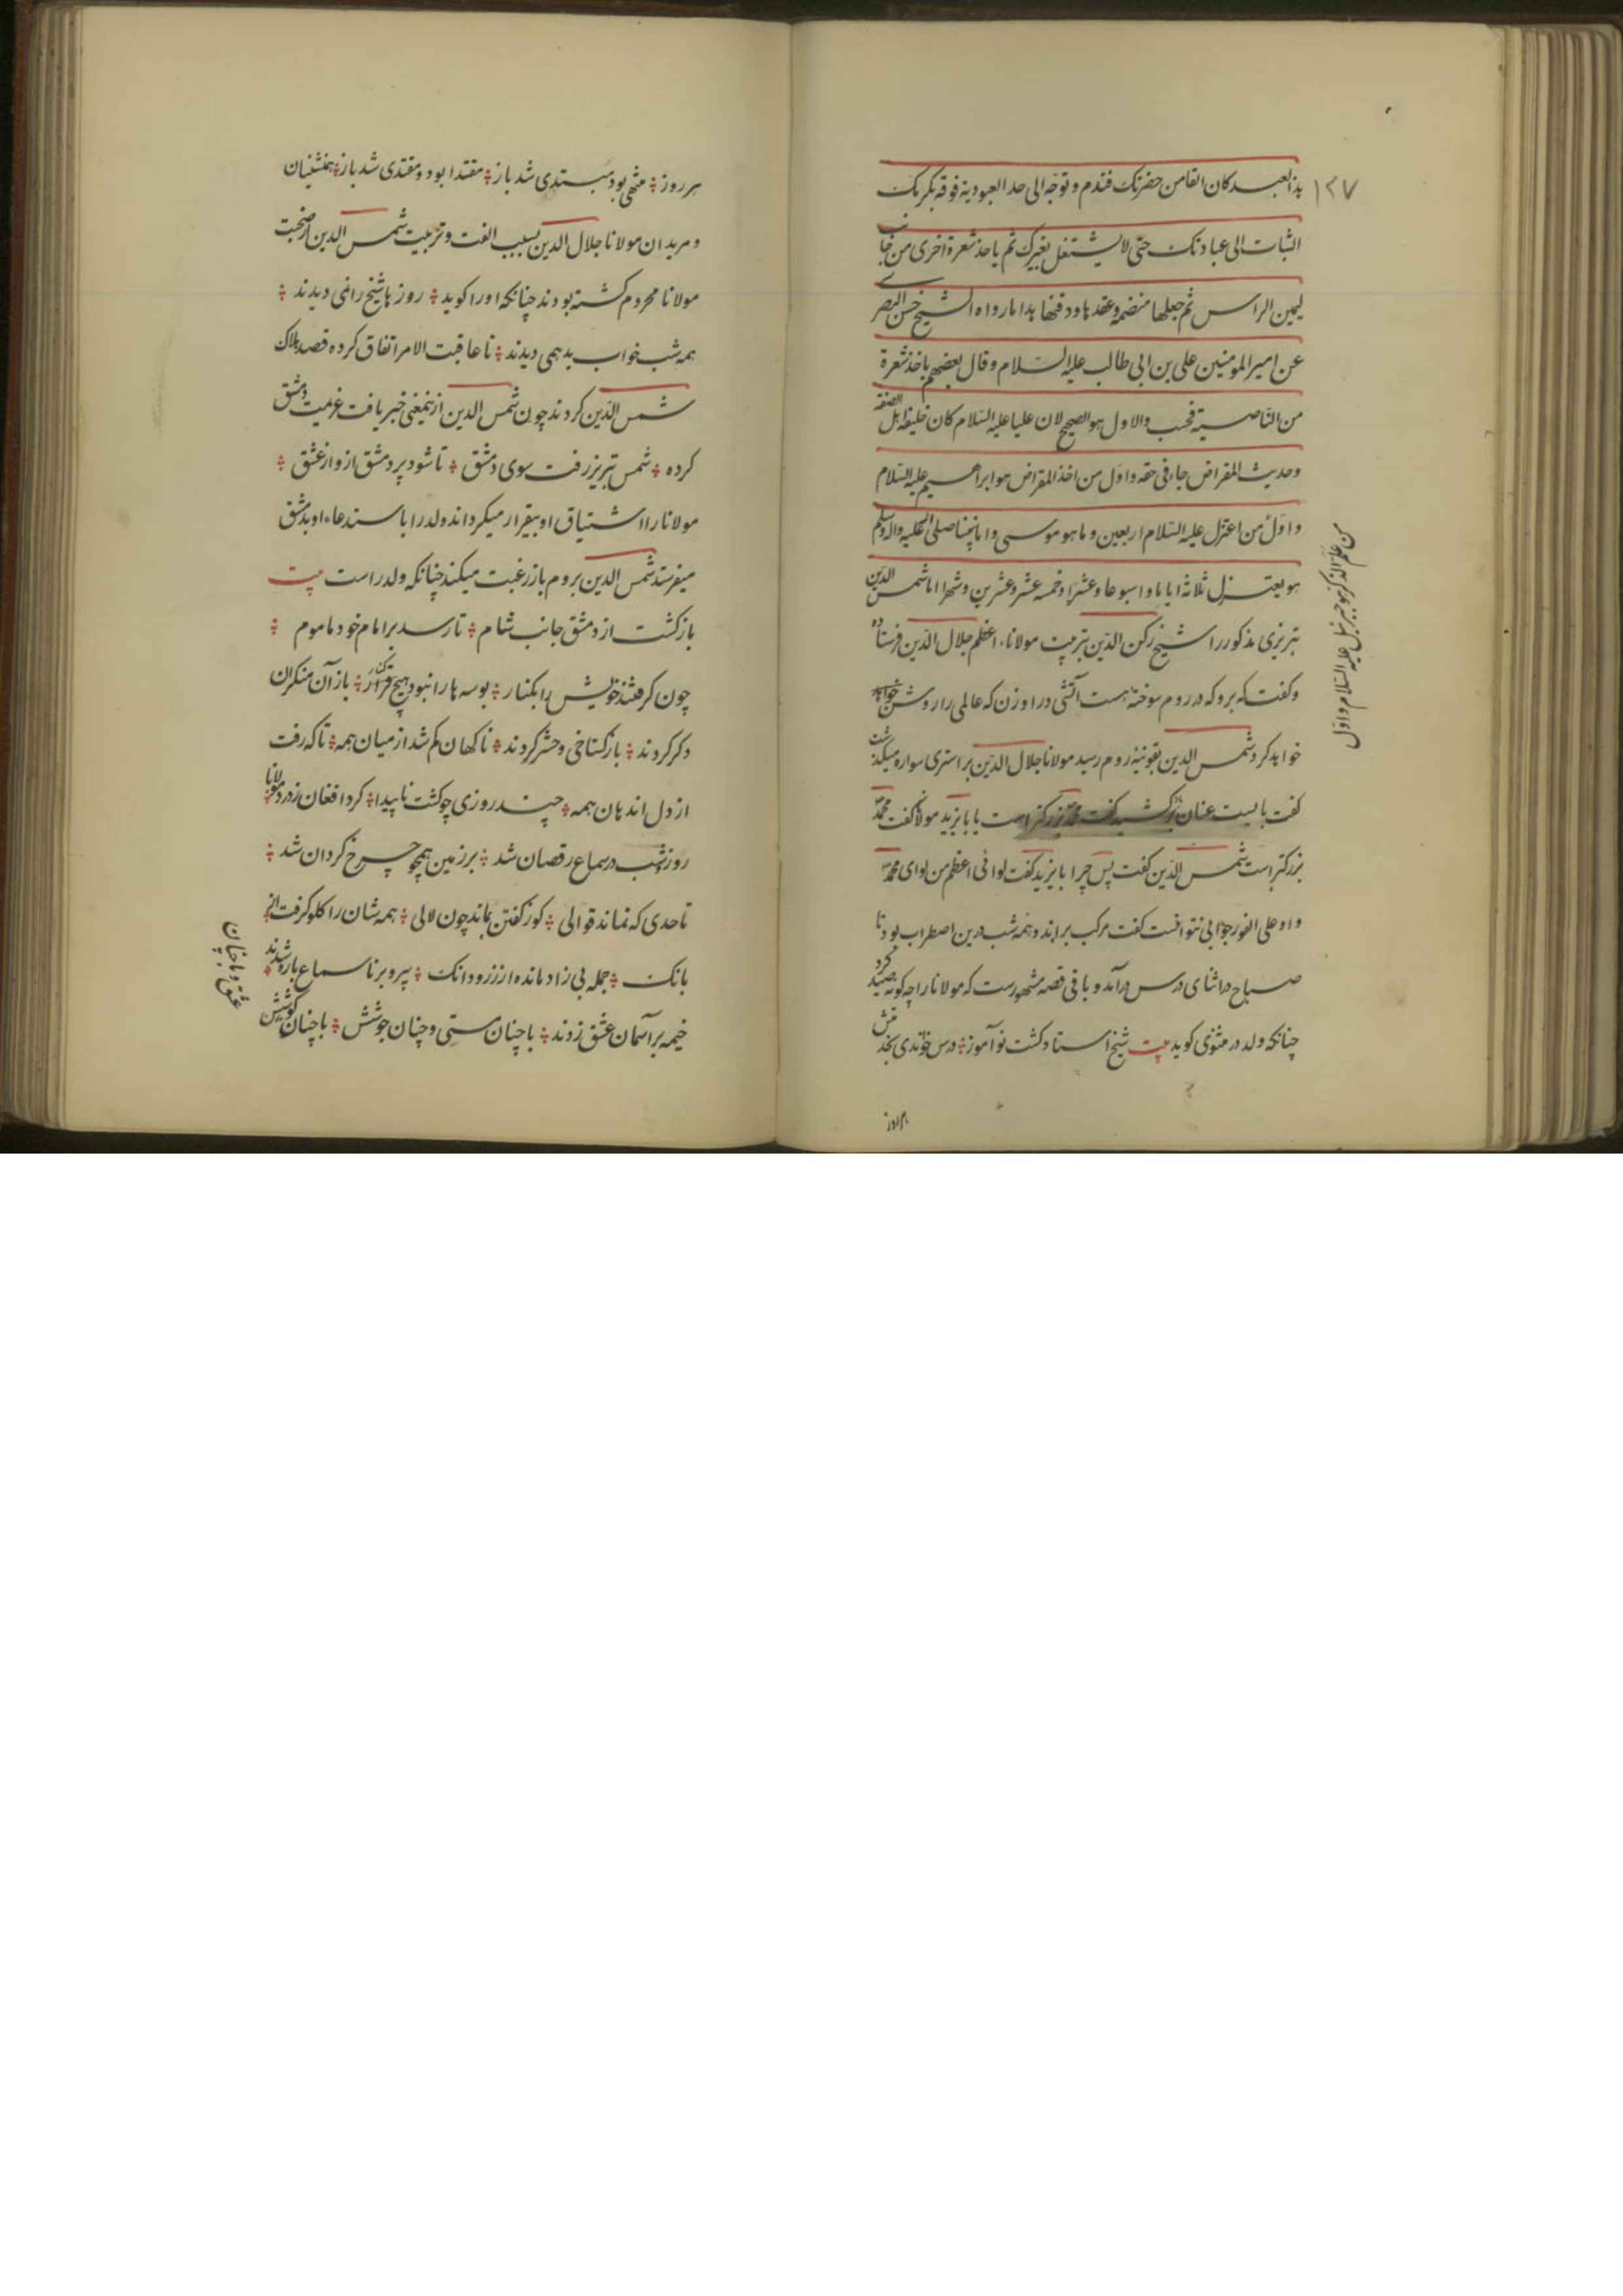 ١٢٧
هذا لعبد کان ابقا من حضرتک فندم و توجه الی حد العبودیة فوقه بکرمک
الثبات الی عبادتک حتی لا یشتغل بغیرک ثم یاخذ شعرة اخری من جانب
لیمین الراس ثم جعلها منضمة و عقدها و دفنها هذا ما رواه الشیخ حسن البصری
عن امیر المومنین علی بن ابی طالب علیه السلام و قال بعضهم یاخذ شعرة
من الناصیة فحسب والاول هو الصحیح لان علیا علیه السلام کان خلیفة اهل الصفة
و حدیث المقراض جاء فی حقه و اول من اخذ المقراض هو ابراهیم علیه السلام
و اول من اعتزل علیه السلام اربعین و ما هو موسی و اما نبینا صلی الله علیه و آله و سلم
هو یعتزل ثلاثة ایاما و اسبوعا و عشرا و خمسة عشر و عشرین و شهرا اما شمس الدین
تبریزی مذکور را شیخ رکن الدین بتربیت مولانا اعظم جلال الدین فرستاده
و کفت که برو که در روم سوخته هست آتشی در او زن که عالمی را روشن خواهد
خواهد کرد شمس الدین بقونیه روم رسید مولانا جلال الدین بر استری سواره میگذشت
کفت بایست عنان برکشید کفت محمد بزرکتر است یا بایزید مولانا کفت محمد
بزرکتر است شمس الدین کفت پس چرا بایزید کفت لوائی اعظم من لوای محمد
و او علی الفور جوابی نتوانست کفت مرکب براند و همه شب درین اضطراب بود تا
صباح در اثنای درس درآمد و باقی قصه مشهورست که مولانا را چه کونه صید کرد
چنانکه ولد در مثنوی کوید بیت شیخ استاد کشت نوآموز ؛ درس خواندی بخدمتش
هر روز
من علم الذکر هو جبرئیل علیه السلام و اول
هر روز ؛ منتهی بود مبتدی شد باز ؛ مقتدا بود و مقتدی شد باز ؛ همنشینان
و مریدان مولانا جلال الدین بسبب الفت و تربیت شمس الدین از صحبت
مولانا محروم کشته بودند چنانکه او را کوید ؛ روزها شیخ را نمی دیدند ؛
همه شب خواب بد همی دیدند ؛ تا عاقبت الامر اتفاق کرده قصد هلاک
شمس الدین کردند چون شمس الدین ازینمعنی خبر یافت عزیمت دمشق
کرده ؛ شمس تبریز رفت سوی دمشق ؛ تا شود پر دمشق ازو از عشق ؛
مولانا را اشتیاق او بیقرار میکرداند ولد را باستدعاء او بدمشق
میفرستد شمس الدین بروم باز رغبت میکند چنانکه ولد راست بیت
بازکشت از دمشق جانب شام ؛ تا رسد بر امام خود ماموم ؛
چون کرفتند خویش را بکنار ؛ بوسها را نبود هیچ قرار ؛ باز آن منکران
دکر کردند ؛ باز کستاخی و حشر کردند ؛ ناکهان کم شد از میان همه ؛ تا که رفت
از دل اندهان همه ؛ چند روزی چو کشت ناپیدا ؛ کرد افغان ز درد مولانا
روز و شب در سماع رقصان شد ؛ بر زمین همچو چرخ کردان شد ؛
تا حدی که نماند قوالی ؛ کو ز کفتن نماند چون لالی ؛ همه شان را کلو کرفت از
بانک ؛ جمله بی زاد مانده از زر و دانک ؛ پیر و برنا سماع باره شدند
خیمه بر آسمان عشق زدند ؛ با چنان مستی و چنان جوشش ؛ با چنان کوشش
عشق و با چنان